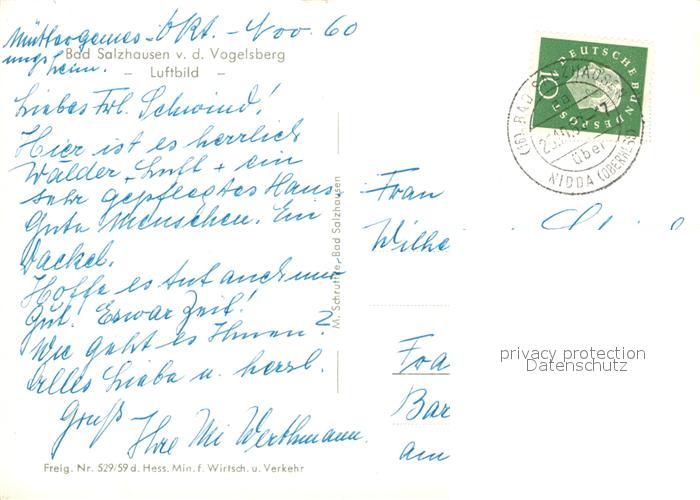 Müttergenes- Okt. - Nov. 60
ungsheim.
Bad Salzhausen v. d. Vogelsberg
– Luftbild –
Liebes Frl. Schwind!
Hier ist es herrlich
Wälder - Luft + ein
sehr gepflegtes Haus
Gute Menschen. Ein
Dackel.
Hoffe es tut auch mir
gut! Es war Zeit!
Wie geht es Ihnen?
Alles Liebe u. herzl.
Gruß
Ihre Mi Werthmann.
Freig. Nr. 529/59 d. Hess. Min. f. Wirtsch. u. Verkehr
M. Schrutzer-Bad Salzhausen
DEUTSCHE BUNDESPOST
10
(16) BAD SALZHAUSEN
über
NIDDA (OBERHESS)
Frau
Wilhe
Fra
Bar
am
privacy protection
Datenschutz